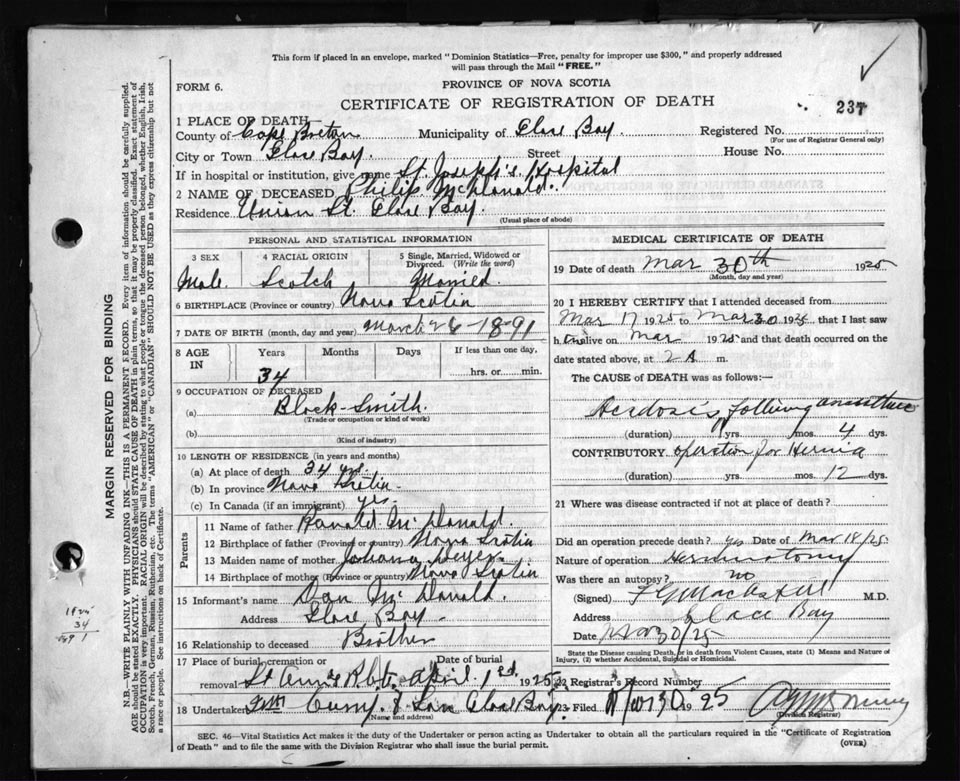 This form if placed in an envelope, marked "Dominion Statistics—Free, penalty for improper use $300," and properly addressed
will pass through the Mail "FREE."
FORM 6.
PROVINCE OF NOVA SCOTIA
CERTIFICATE OF REGISTRATION OF DEATH
237
1 PLACE OF DEATH
County of Cape Breton Municipality of Glace Bay. Registered No.
(For use of Registrar General only)
City or Town Glace Bay. Street House No.
If in hospital or institution, give name St. Joseph's Hospital
2 NAME OF DECEASED Philip McDonald.
Residence Union St. Glace Bay.
(Usual place of abode)
PERSONAL AND STATISTICAL INFORMATION
3 SEX 4 RACIAL ORIGIN 5 Single, Married, Widowed or Divorced. (Write the word)
Male. Scotch Married.
6 BIRTHPLACE (Province or country) Nova Scotia
7 DATE OF BIRTH (month, day and year) March 26-1891
8 AGE IN Years Months Days If less than one day,
34 hrs. or min.
9 OCCUPATION OF DECEASED
(a) Black-Smith.
(Trade or occupation or kind of work)
(b)
(Kind of industry)
10 LENGTH OF RESIDENCE (in years and months)
(a) At place of death 34 yrs.
(b) In province Nova Scotia
(c) In Canada (if an immigrant) yes.
Parents
11 Name of father Ranald McDonald.
12 Birthplace of father (Province or country) Nova Scotia
13 Maiden name of mother Johanna
14 Birthplace of mother (Province or country) Nova Scotia
15 Informant's name Dan McDonald.
Address Glace Bay.
16 Relationship to deceased Brother
17 Place of burial, cremation or removal Date of burial
St Anns April 1st 1925
18 Undertaker & Son Glace Bay.
(Name and address)
MEDICAL CERTIFICATE OF DEATH
19 Date of death Mar 30th 1925
(Month, day and year)
20 I HEREBY CERTIFY that I attended deceased from
Mar 17 1925 to Mar 30 1925 that I last saw
h im alive on Mar 1925 and that death occurred on the
date stated above, at 2 A m.
The CAUSE of DEATH was as follows:—
Acidosis following anesthetic
(duration) yrs. mos. 4 dys.
CONTRIBUTORY operation for Hernia
(duration) yrs. mos. 12 dys.
21 Where was disease contracted if not at place of death?
Did an operation precede death? yes Date of Mar 18/25
Nature of operation Herniotomy
Was there an autopsy? no
(Signed) M.D.
Address Glace Bay
Date Mar 30/25
State the Disease causing Death, or in death from Violent Causes, state (1) Means and Nature of
Injury, (2) whether Accidental, Suicidal or Homicidal.
22 Registrar's Record Number
23 Filed Mar 30 1925
(Division Registrar)
SEC. 46—Vital Statistics Act makes it the duty of the Undertaker or person acting as Undertaker to obtain all the particulars required in the "Certificate of Registration
of Death" and to file the same with the Division Registrar who shall issue the burial permit.
(OVER)
MARGIN RESERVED FOR BINDING
N.B.—WRITE PLAINLY WITH UNFADING INK—THIS IS A PERMANENT RECORD. Every item of information should be carefully supplied.
AGE should be stated EXACTLY. PHYSICIANS should STATE CAUSE OF DEATH in plain terms, so that it may be properly classified. Exact statement of
OCCUPATION is very important. RACIAL ORIGIN will be described by stating to what people or tongue the deceased person belonged, whether English, Irish,
Scotch, French, German, Russian, Ruthenian, etc. The terms "AMERICAN" or "CANADIAN" SHOULD NOT BE USED as they express citizenship but not
a race or people. See instructions on back of Certificate.
1925
34